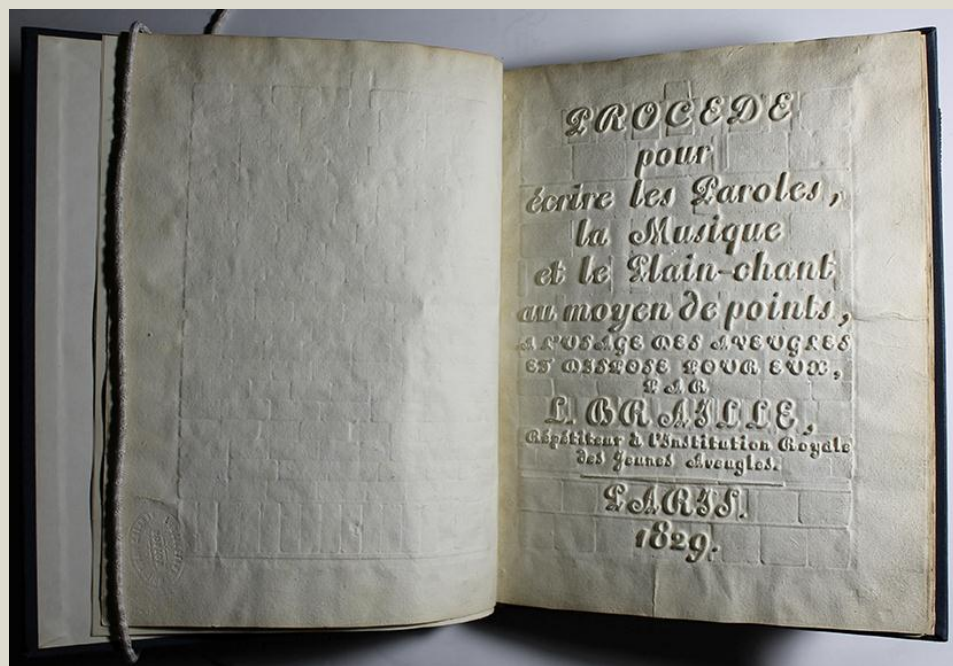 PROCEDE
pour
écrire les Paroles,
la Musique
et le Plain-chant
au moyen de points,
A L'USAGE DES AVEUGLES
ET DISPOSE POUR EUX,
PAR
L. BRAILLE,
Répétiteur à l'Institution Royale
des Jeunes Aveugles.
PARIS.
1829.